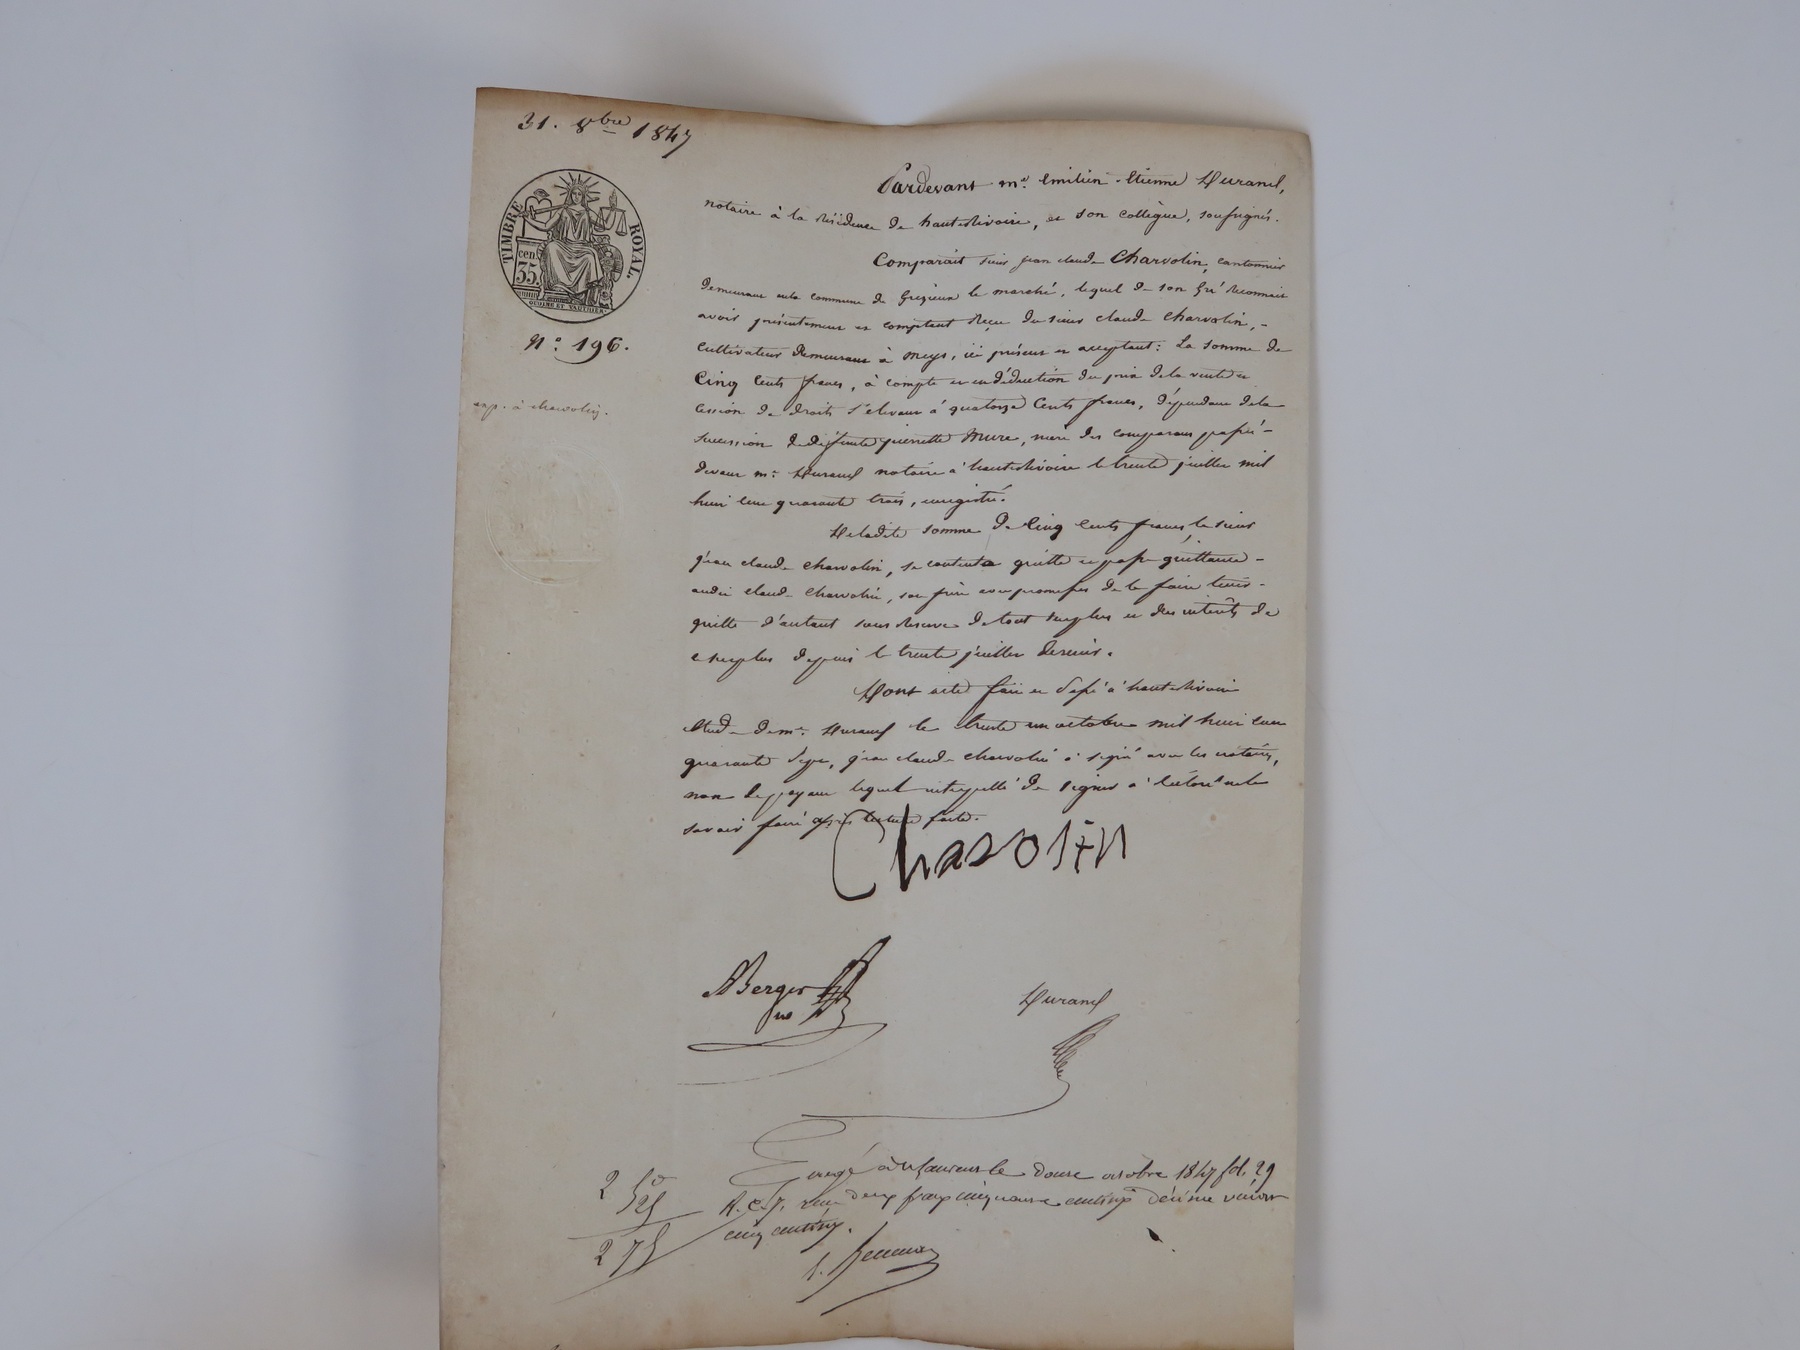 31. 8bre 1847
TIMBRE ROYAL.
cen.
35.
GUDING ET VAUTHIER.
N.o 196.
exp. à charvolin.
Pardevant me. emilien-Etienne Durand,
notaire à la résidence de hauterivoire, et son collègue, soussignés.
Comparait sieur jean claude Charvolin, cantonnier
demeurant en la commune de Grezieux le marché, lequel de son gré reconnait
avoir présentement et comptant reçu du sieur claude Charvolin, -
cultivateur demeurant à meys, ici présent et acceptant: La somme de
Cinq cents francs, à compte et en déduction du prix de la vente et
cession de droits s'élevant à quatorze cents francs, dépendant de la
succession de défunte pierrette Mure, mère des comparans passé -
devant me. Durand notaire à hauterivoire le trente juillet mil
huit cent quarante trois, enregistré.
De ladite somme de Cinq cents francs, le sieur
jean claude charvolin, se contente quitte et passe quittance -
audit claude Charvolin, son frère avec promesse de le faire tenir -
quitte d'autant sous réserve de tout surplus et des intérêts de
ce surplus depuis le trente juillet dernier.
Dont acte fait et passé à hauterivoire
Etude de me. Durand le trente un octobre mil huit cent
quarante sept, jean claude charvolin a signé avec les notaires,
non le payeur lequel interpellé de signer a déclaré ne le
savoir faire après lecture faite.
Charolin
Berger
Durand
2 50
25
2 75
le douze octobre 1847 fol. 29
R. C. 7. reçu deux francs cinquante centimes décime vingt
cinq centimes.